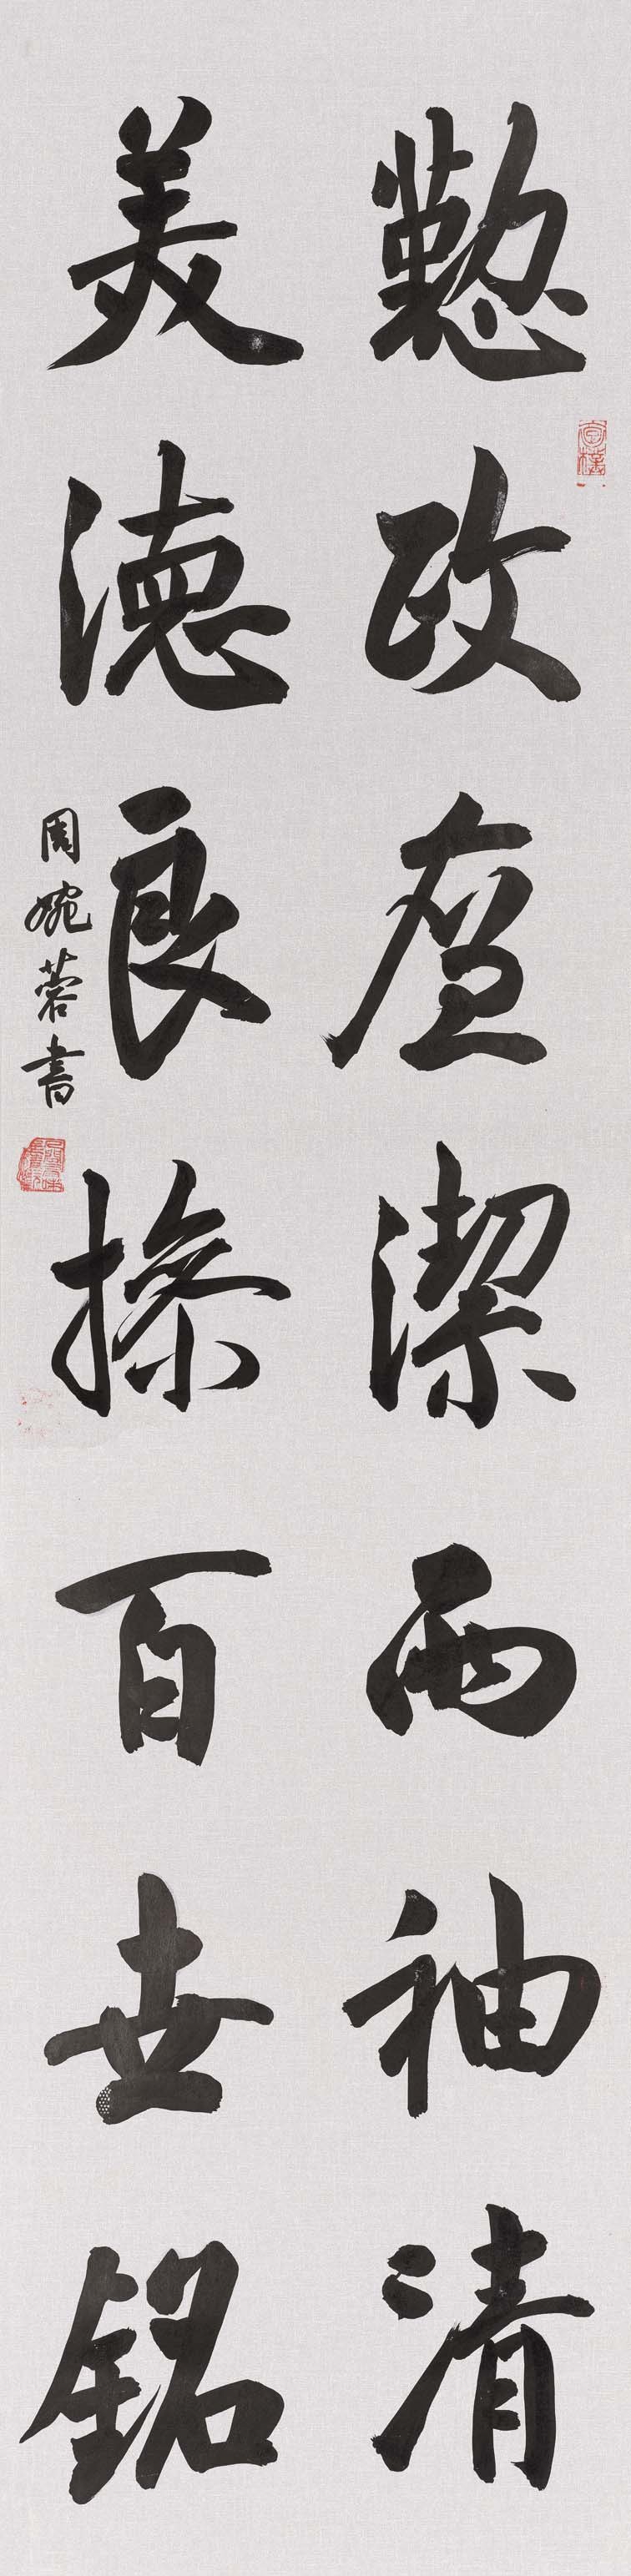 懃政廉潔兩袖清
美德良操百世銘
周婉蓉書